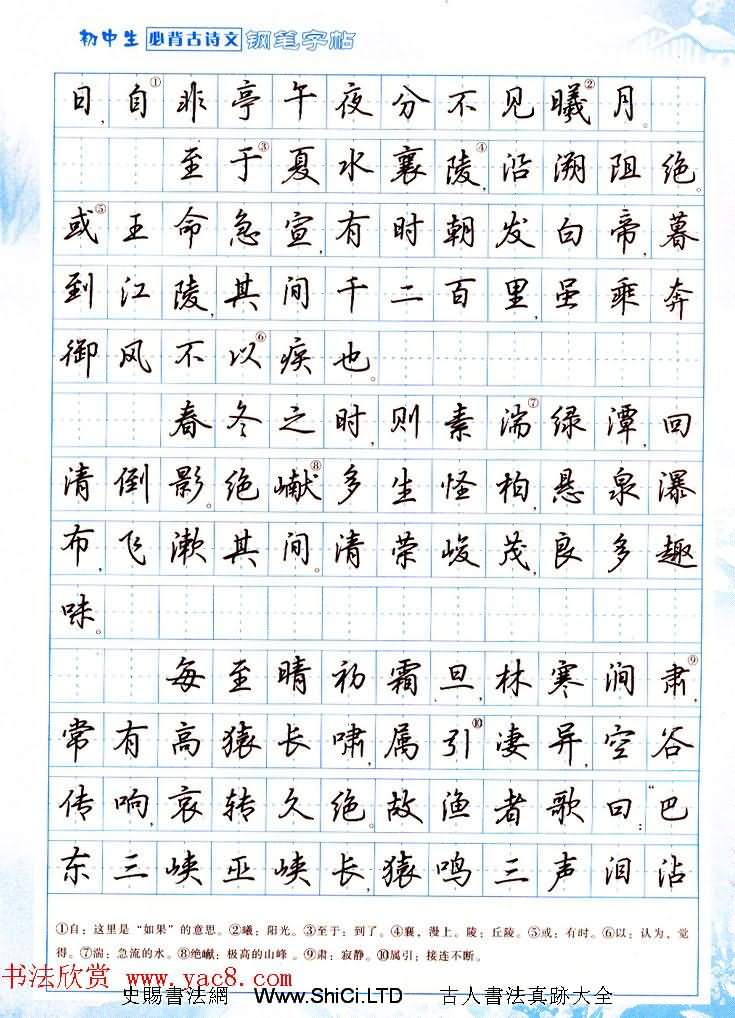 初中生必背古诗文钢笔字帖
日,自①非亭午夜分不见曦②月。
至于③夏水襄陵④,沿溯阻绝。
或⑤王命急宣,有时朝发白帝,暮
到江陵,其间千二百里,虽乘奔
御风不以⑥疾也。
春冬之时,则素湍⑦绿潭,回
清倒影。绝巘⑧多生怪柏,悬泉瀑
布,飞漱其间。清荣峻茂,良多趣
味。
每至晴初霜旦,林寒涧肃⑨,
常有高猿长啸,属引⑩凄异,空谷
传响,哀转久绝。故渔者歌曰:“巴
东三峡巫峡长,猿鸣三声泪沾
①自:这里是“如果”的意思。②曦:阳光。③至于:到了。④襄,漫上。陵:丘陵。⑤或:有时。⑥以:认为,觉
得。⑦湍:急流的水。⑧绝巘:极高的山峰。⑨肃:寂静。⑩属引:接连不断。
书法欣赏 www.yac8.com
史賜書法網 Www.ShiCi.LTD 古人書法真跡大全